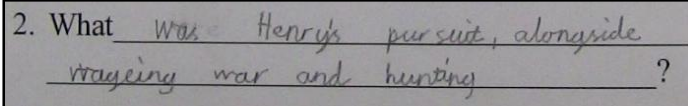 2. What was Henry's pursuit, alongside
wrageing war and hunting?